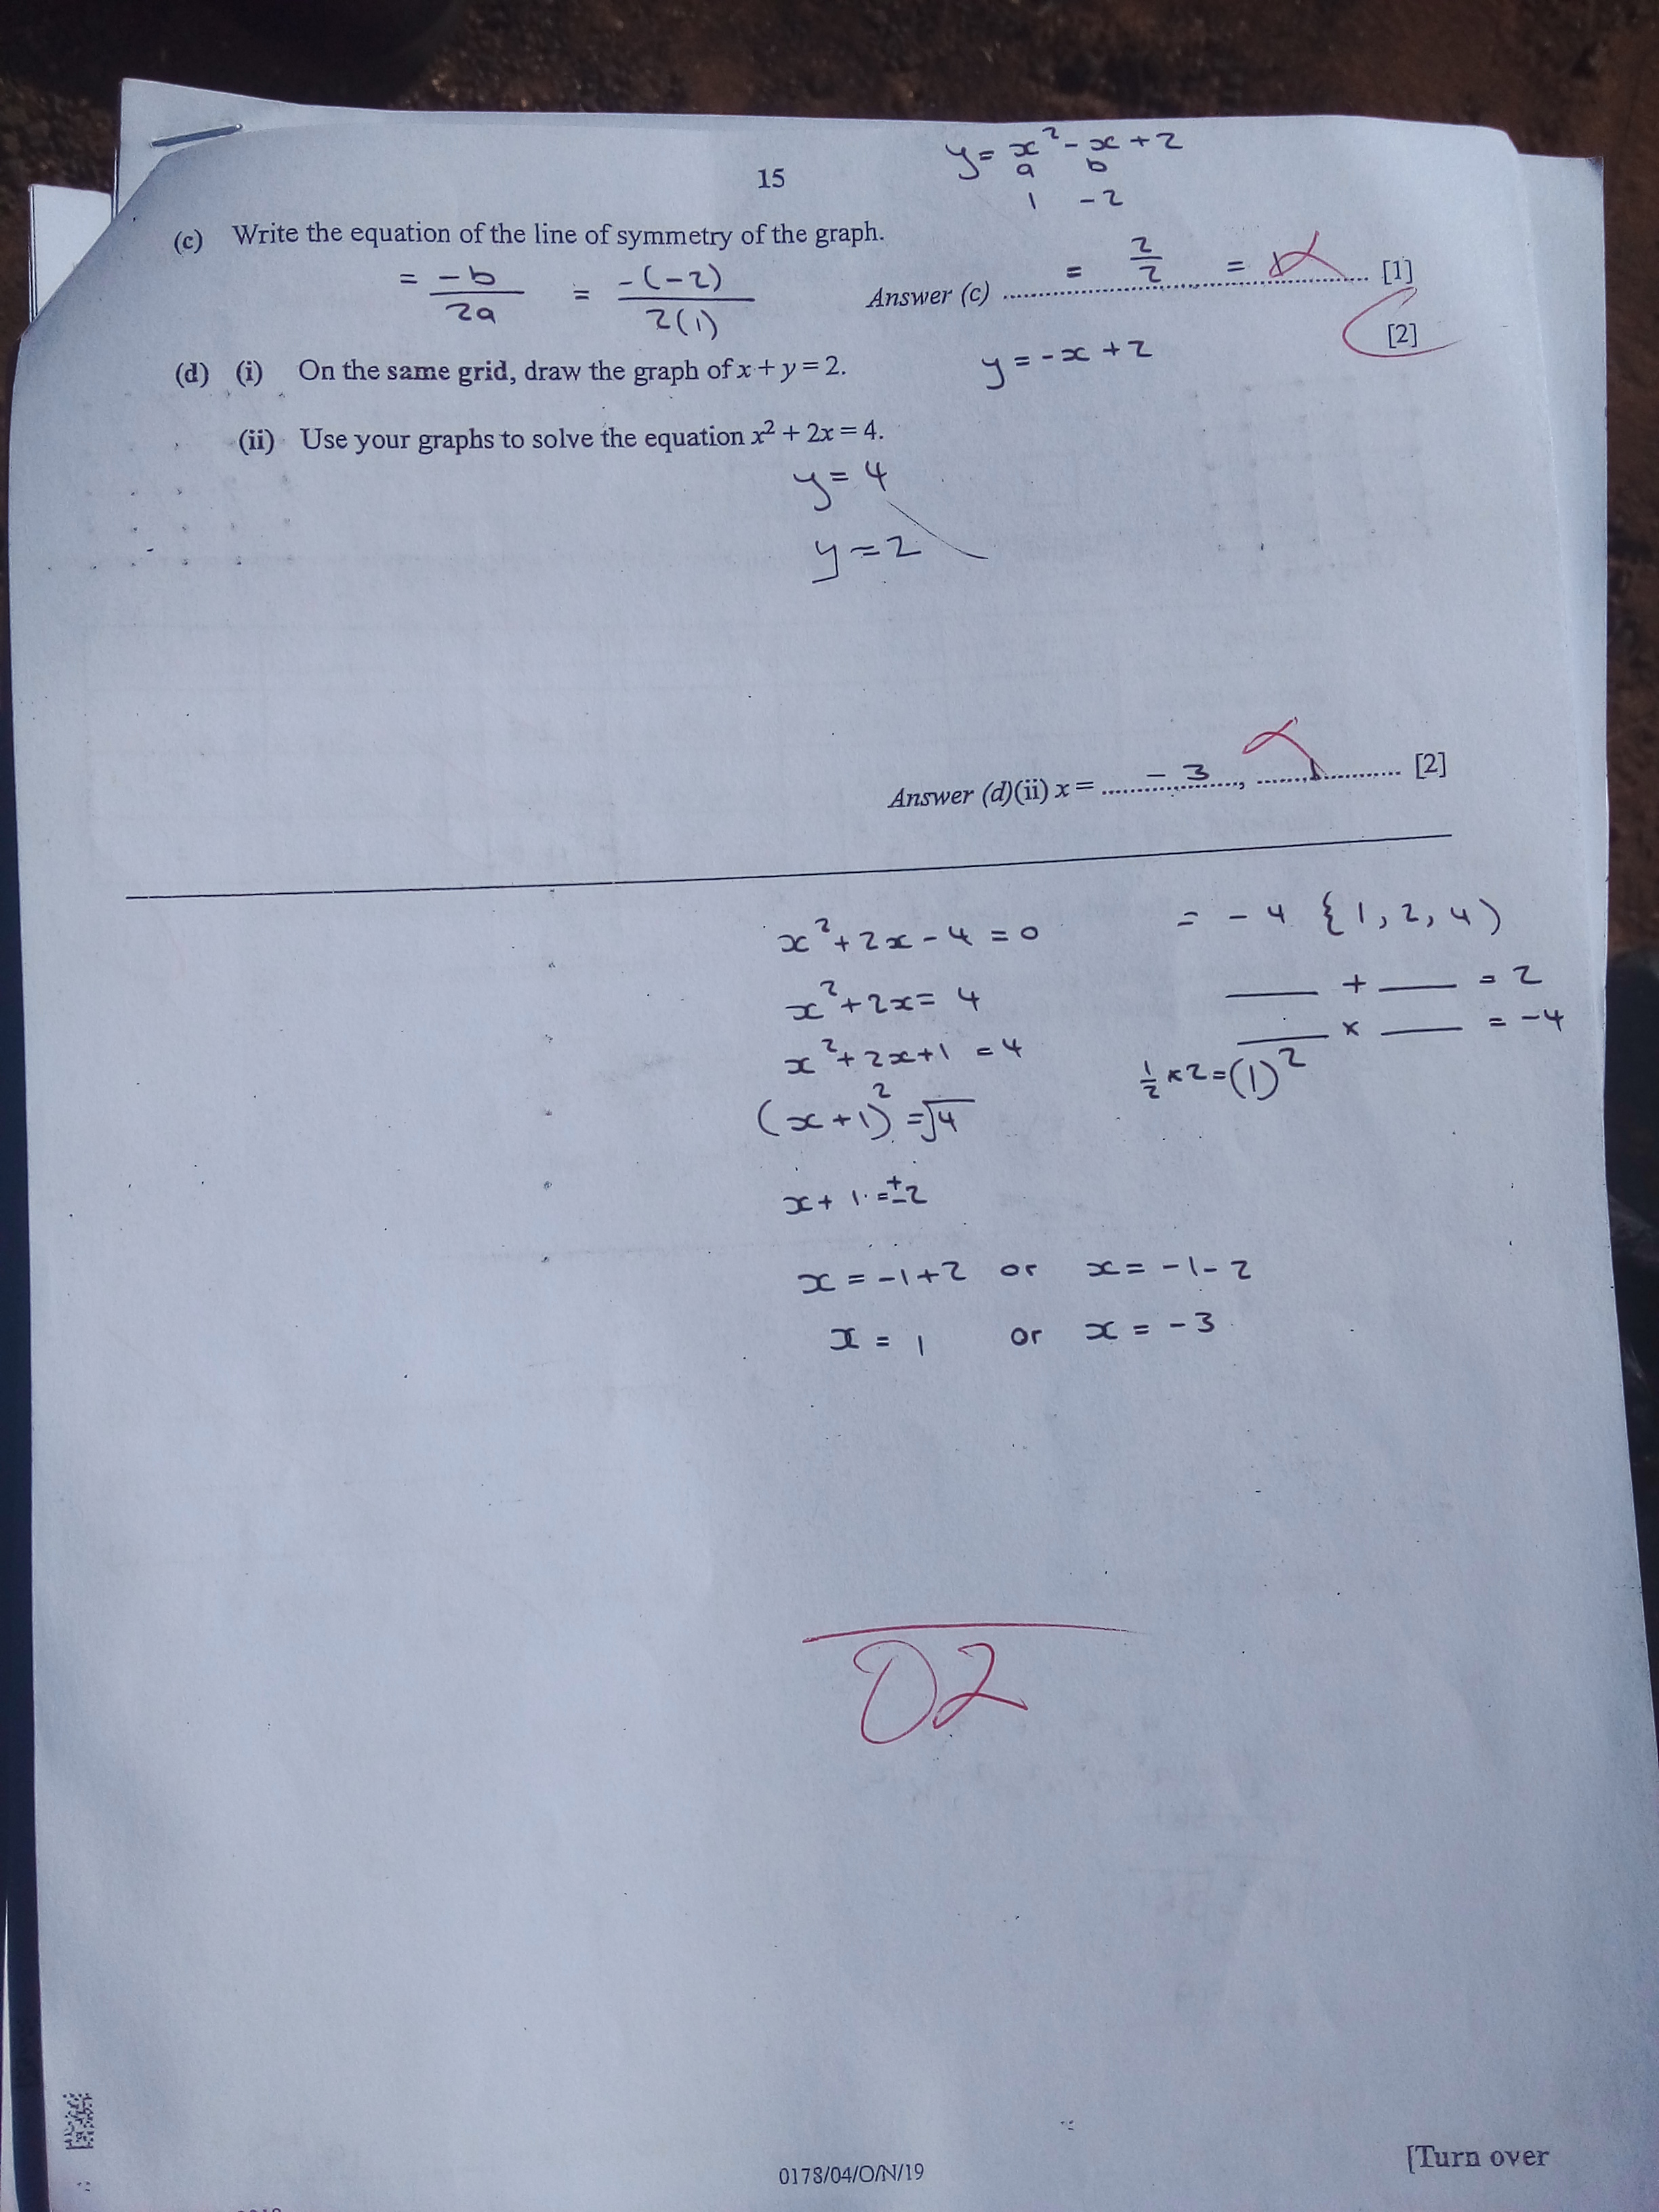 y = x² - x + 2
a b
1 -2
15
(c) Write the equation of the line of symmetry of the graph.
= -b/2a = -(-2)/2(1)
Answer (c) = 2/2 = 1 [1]
[2]
(d) (i) On the same grid, draw the graph of x + y = 2.
y = -x + 2
(ii) Use your graphs to solve the equation x² + 2x = 4.
y = 4
y = 2
Answer (d)(ii) x = -3, 1 [2]
x² + 2x - 4 = 0 = -4 {1, 2, 4)
x² + 2x = 4 ___ + ___ = 2
x² + 2x + 1 = 4 ___ x ___ = -4
(x + 1)² = √4 ½ x 2 = (1)²
x + 1 = ±2
x = -1 + 2 or x = -1 - 2
x = 1 or x = -3
02
0178/04/O/N/19
[Turn over